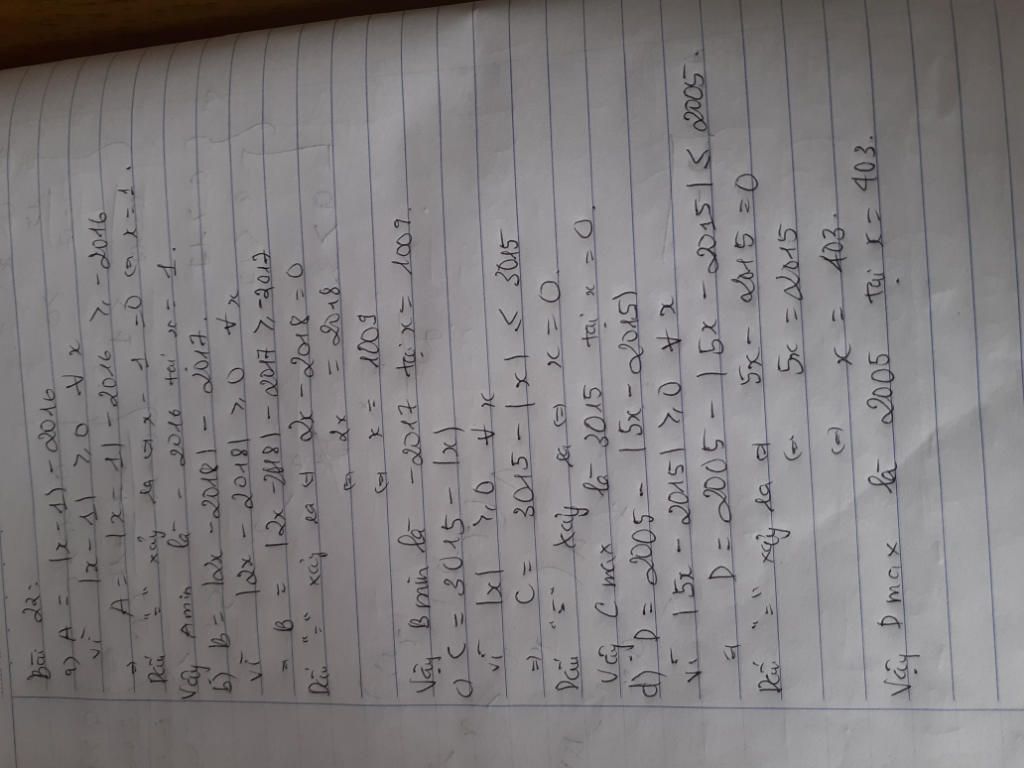 Bài 22:
a) A = |x - 1| - 2016
Vì |x - 1| ≥ 0 ∀ x
=> A = |x - 1| - 2016 ≥ -2016
Dấu "=" xảy ra <=> x - 1 = 0 <=> x = 1.
Vậy Amin là - 2016 tại x = 1.
b) B = |2x - 2018| - 2017.
Vì |2x - 2018| ≥ 0 ∀ x
=> B = |2x - 2018| - 2017 ≥ -2017
Dấu "=" xảy ra <=> 2x - 2018 = 0
<=> 2x = 2018
<=> x = 1009
Vậy Bmin là -2017 tại x = 1009.
c) C = 3015 - |x|
Vì |x| ≥ 0 ∀ x
=> C = 3015 - |x| ≤ 3015
Dấu "=" xảy ra <=> x = 0.
Vậy Cmax là 3015 tại x = 0.
d) D = 2005 - |5x - 2015|
Vì |5x - 2015| ≥ 0 ∀ x
=> D = 2005 - |5x - 2015| ≤ 2005.
Dấu "=" xảy ra <=> 5x - 2015 = 0
<=> 5x = 2015
<=> x = 403.
Vậy Dmax là 2005 tại x = 403.